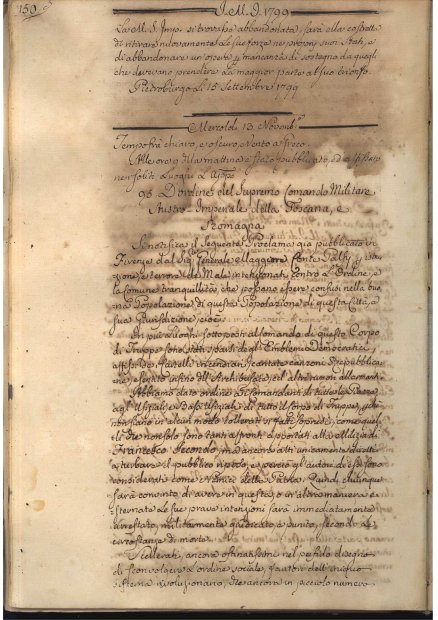 150
I.M.D. 1799
La M. S. Imp. si trovasse abbandonata, sarà ella costretta
di ritirare nuovamente le sue forze ne propri suoi Stati, e
di abbandonare un opera mancanza di sostegno da quegli
che devevano prendere la maggior parte al suo trionfo.
Pietroburgo li 15 Settembre 1799
Mercoldì 13 Novembre
Tempo frà chiaro, e oscuro, vento a freco.
Alle ore 9 della mattina è stato pubblicato, ed affissato
ne soliti Luoghi
93. D'ordine del Supremo Comando Militare
Austro-Imperiale della Toscana, e
Romagna
Si notifica il seguente Proclama già pubblicato in
Firenze dal Sig. Generale Maggiore Conte Palfi
terrore de Male intenzionati contro l'Ordine, e
la comune tranquillità, che possano essere confusi nella buo
na Popolazione di questa Città, e
sua Giurisdizione, cioè
In più Luoghi sottoposti al Comando di questo Corpo
di Truppe sono stati sparsi degli Emblemi Democratici,
cantate canzoni Repubblica
ne, e sentito infino Archibusate, ed altri rumori allarmanti.
Abbiamo dato ordine ai Comandanti di tutte le Piazze
agl'Ufiziali, e Bassi Ufiziali di tutto il Corpo di Truppe, che
non siano in alcun modo tollerati fatti simili, come quel
li che non solo sono tanti affronti apportati alla Milizia di
Francesco Secondo, ma ancora atti unicamente diretti
a turbare il pubblico riposo, e perciò gl'autori di essi sono
considerati come Nemici della Patria. Quindi chiunque
sarà convinto di avere in questa, o in altra maniera e=
sternate le sue prave intenzioni sarà immediatamente
arrestato, militarmente giudicato, e punito, secondo le
circostanze di morte.
Scellerati, ancora ostinatissimi nel perfido disegno
di sconvolgere l'ordine sociale, fautori dell'iniquo
sistema rivoluzionario, che ancora in piccolo numero